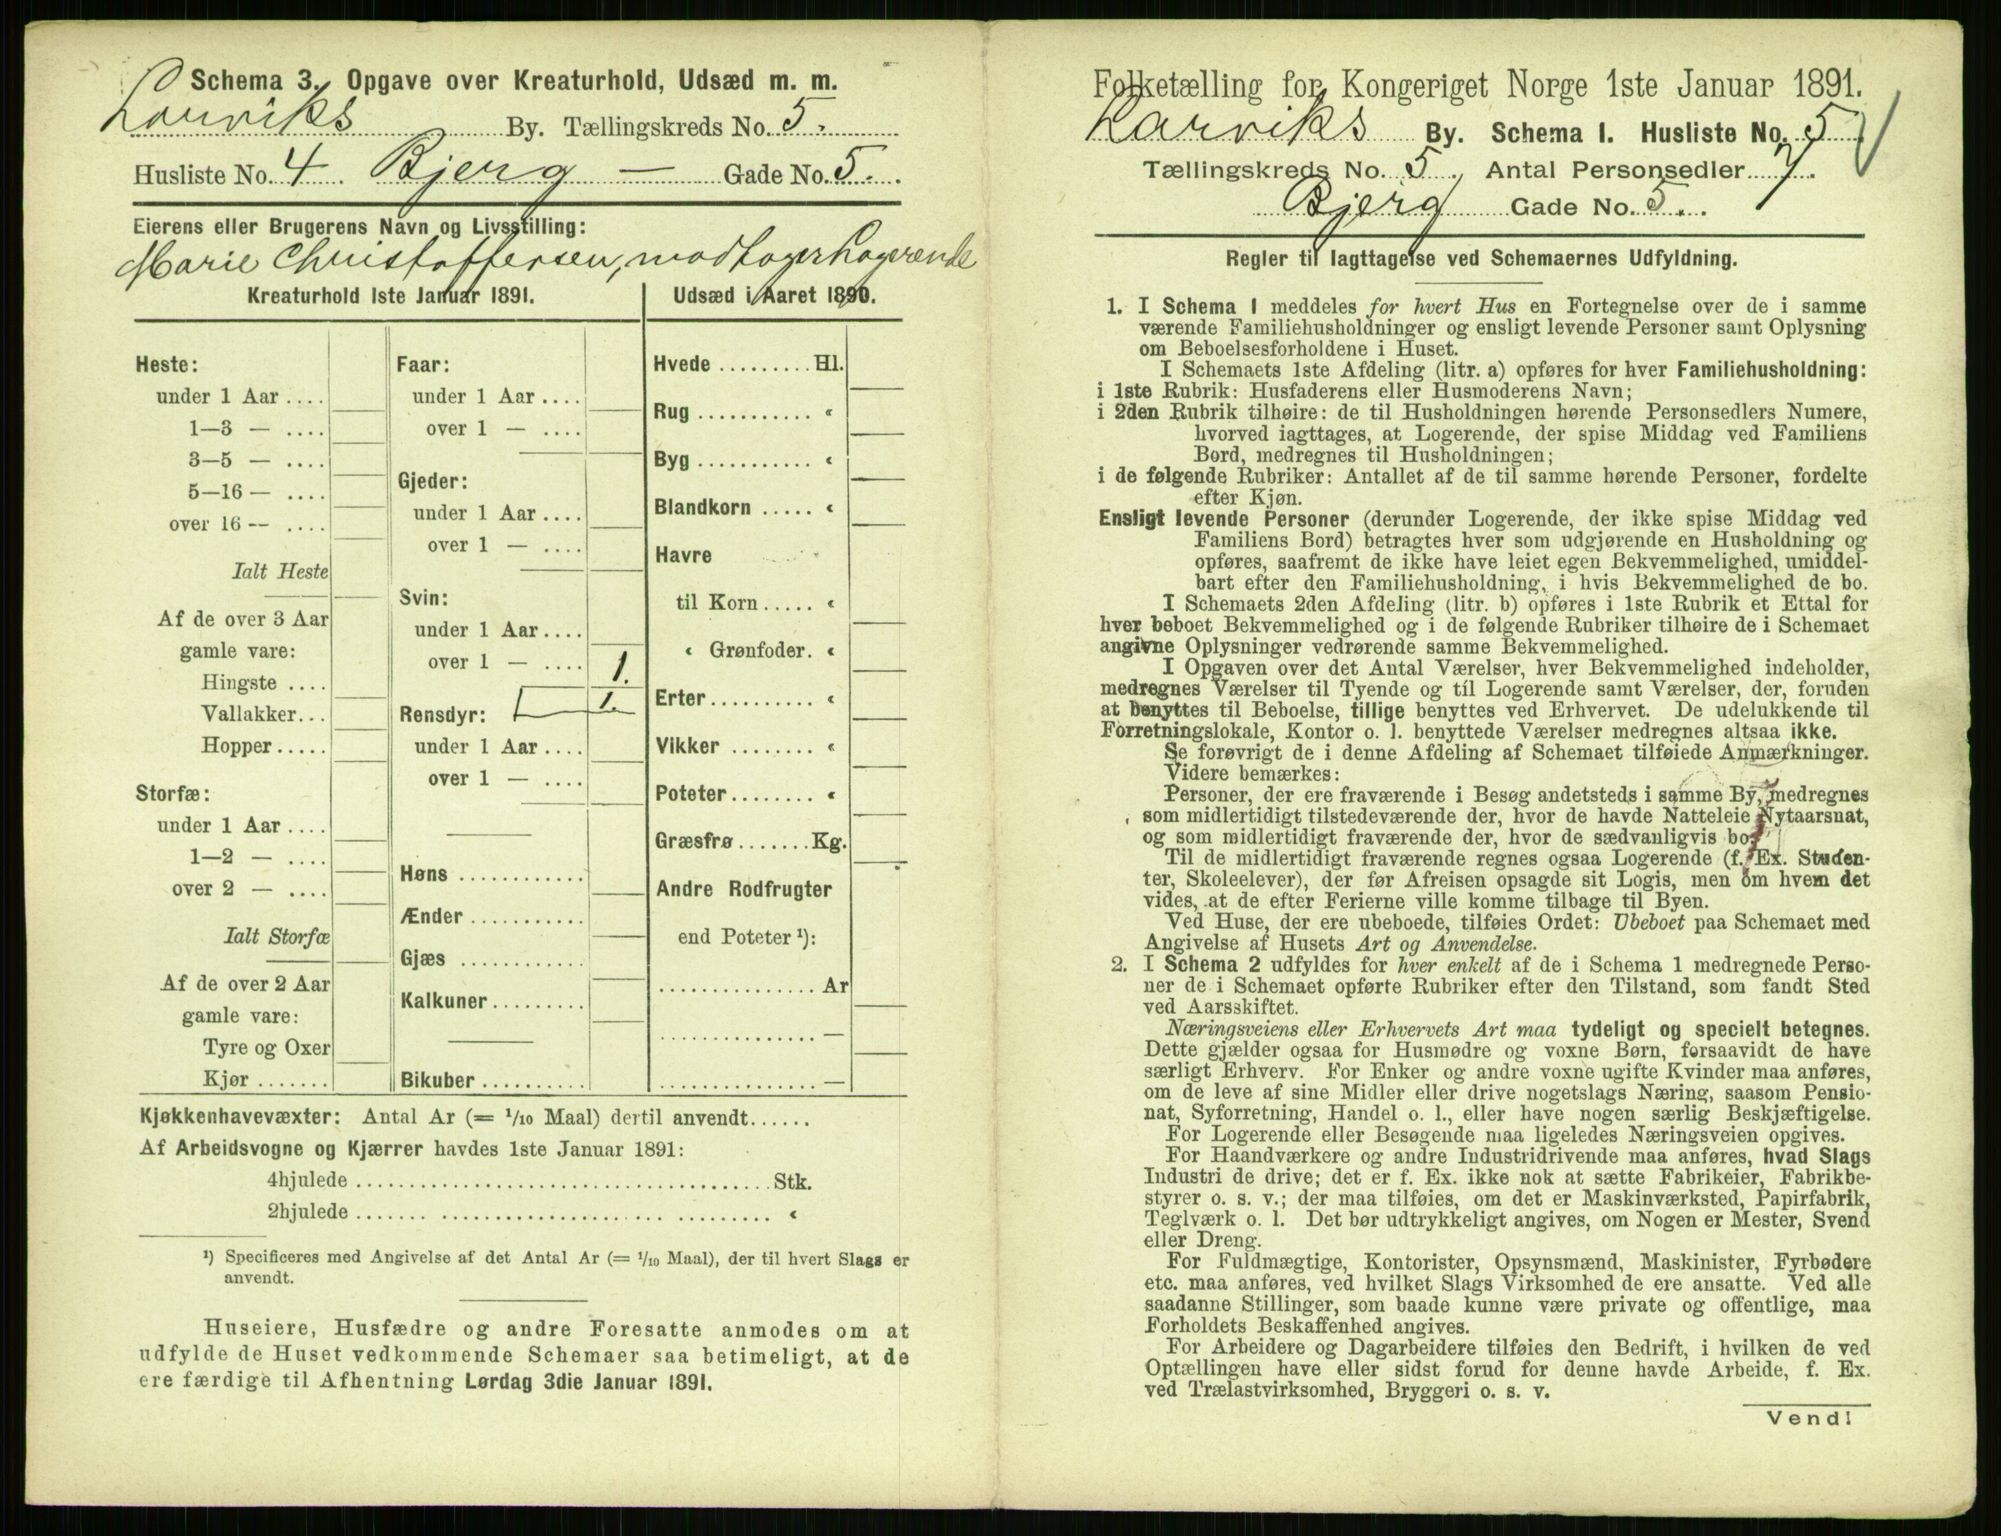 Schema 3. Opgave over Kreaturhold, Udsæd m. m.
Larviks By. Tællingskreds No. 5.
Husliste No. 4 Bjerg — Gade No. 5.
Eierens eller Brugerens Navn og Livsstilling:
Marie Christoffersen, modtager Logerende
Kreaturhold 1ste Januar 1891.
Heste:
under 1 Aar ....
1—3 — ....
3—5 — ....
5—16 — ....
over 16 — ....
Ialt Heste
Af de over 3 Aar
gamle vare:
Hingste ....
Vallakker...
Hopper.....
Storfæ:
under 1 Aar ....
1—2 — ....
over 2 — ....
Ialt Storfæ
Af de over 2 Aar
gamle vare:
Tyre og Oxer
Kjør .......
Faar:
under 1 Aar ....
over 1 — ....
Gjeder:
under 1 Aar ....
over 1 — ....
Svin:
under 1 Aar ....
over 1 — .... 1.
1.
Rensdyr:
under 1 Aar ....
over 1 — ....
Høns ............
Ænder ...........
Gjæs ............
Kalkuner.........
Bikuber ..........
Udsæd i Aaret 1890.
Hvede ......... Hl.
Rug ........... «
Byg ........... «
Blandkorn ..... «
Havre
til Korn ..... «
« Grønfoder. «
Erter.......... «
Vikker ........ «
Poteter........ «
Græsfrø ....... Kg.
Andre Rodfrugter
end Poteter ¹):
............... Ar
............... —
............... —
Kjøkkenhavevæxter: Antal Ar (= 1/10 Maal) dertil anvendt......
Af Arbeidsvogne og Kjærrer havdes 1ste Januar 1891:
4hjulede ..................................... Stk.
2hjulede ..................................... «
¹) Specificeres med Angivelse af det Antal Ar (= 1/10 Maal), der til hvert Slags er
anvendt.
Huseiere, Husfædre og andre Foresatte anmodes om at
udfylde de Huset vedkommende Schemaer saa betimeligt, at de
ere færdige til Afhentning Lørdag 3die Januar 1891.
Folketælling for Kongeriget Norge 1ste Januar 1891.
Larviks By. Schema 1. Husliste No. 5
Tællingskreds No. 5. Antal Personsedler 7.
Bjerg Gade No. 5.
Regler til Iagttagelse ved Schemaernes Udfyldning.
1. I Schema 1 meddeles for hvert Hus en Fortegnelse over de i samme
værende Familiehusholdninger og ensligt levende Personer samt Oplysning
om Beboelsesforholdene i Huset.
I Schemaets 1ste Afdeling (litr. a) opføres for hver Familiehusholdning:
i 1ste Rubrik: Husfaderens eller Husmoderens Navn;
i 2den Rubrik tilhøire: de til Husholdningen hørende Personsedlers Numere,
hvorved iagttages, at Logerende, der spise Middag ved Familiens
Bord, medregnes til Husholdningen;
i de følgende Rubriker: Antallet af de til samme hørende Personer, fordelte
efter Kjøn.
Ensligt levende Personer (derunder Logerende, der ikke spise Middag ved
Familiens Bord) betragtes hver som udgjørende en Husholdning og
opføres, saafremt de ikke have leiet egen Bekvemmelighed, umiddel-
bart efter den Familiehusholdning, i hvis Bekvemmelighed de bo.
I Schemaets 2den Afdeling (litr. b) opføres i 1ste Rubrik et Ettal for
hver beboet Bekvemmelighed og i de følgende Rubriker tilhøire de i Schemaet
angivne Oplysninger vedrørende samme Bekvemmelighed.
I Opgaven over det Antal Værelser, hver Bekvemmelighed indeholder,
medregnes Værelser til Tyende og til Logerende samt Værelser, der, foruden
at benyttes til Beboelse, tillige benyttes ved Erhvervet. De udelukkende til
Forretningslokale, Kontor o. l. benyttede Værelser medregnes altsaa ikke.
Se forøvrigt de i denne Afdeling af Schemaet tilføiede Anmærkninger.
Videre bemærkes:
Personer, der ere fraværende i Besøg andetsteds i samme By, medregnes
som midlertidigt tilstedeværende der, hvor de havde Natteleie Nytaarsnat,
og som midlertidigt fraværende der, hvor de sædvanligvis bo.
Til de midlertidigt fraværende regnes ogsaa Logerende (f. Ex. Studen-
ter, Skoleelever), der før Afreisen opsagde sit Logis, men om hvem det
vides, at de efter Ferierne ville komme tilbage til Byen.
Ved Huse, der ere ubeboede, tilføies Ordet: Ubeboet paa Schemaet med
Angivelse af Husets Art og Anvendelse.
2. I Schema 2 udfyldes for hver enkelt af de i Schema 1 medregnede Perso-
ner de i Schemaet opførte Rubriker efter den Tilstand, som fandt Sted
ved Aarsskiftet.
Næringsveiens eller Erhvervets Art maa tydeligt og specielt betegnes.
Dette gjælder ogsaa for Husmødre og voxne Børn, forsaavidt de have
særligt Erhverv. For Enker og andre voxne ugifte Kvinder maa anføres,
om de leve af sine Midler eller drive nogetslags Næring, saasom Pensio-
nat, Syforretning, Handel o. l., eller have nogen særlig Beskjæftigelse.
For Logerende eller Besøgende maa ligeledes Næringsveien opgives.
For Haandværkere og andre Industridrivende maa anføres, hvad Slags
Industri de drive; det er f. Ex. ikke nok at sætte Fabrikeier, Fabrikbe-
styrer o. s. v.; der maa tilføies, om det er Maskinværksted, Papirfabrik,
Teglværk o. l. Det bør udtrykkeligt angives, om Nogen er Mester, Svend
eller Dreng.
For Fuldmægtige, Kontorister, Opsynsmænd, Maskinister, Fyrbødere
etc. maa anføres, ved hvilket Slags Virksomhed de ere ansatte. Ved alle
saadanne Stillinger, som baade kunne være private og offentlige, maa
Forholdets Beskaffenhed angives.
For Arbeidere og Dagarbeidere tilføies den Bedrift, i hvilken de ved
Optællingen have eller sidst forud for denne havde Arbeide, f. Ex.
ved Trælastvirksomhed, Bryggeri o. s. v.
Vend!